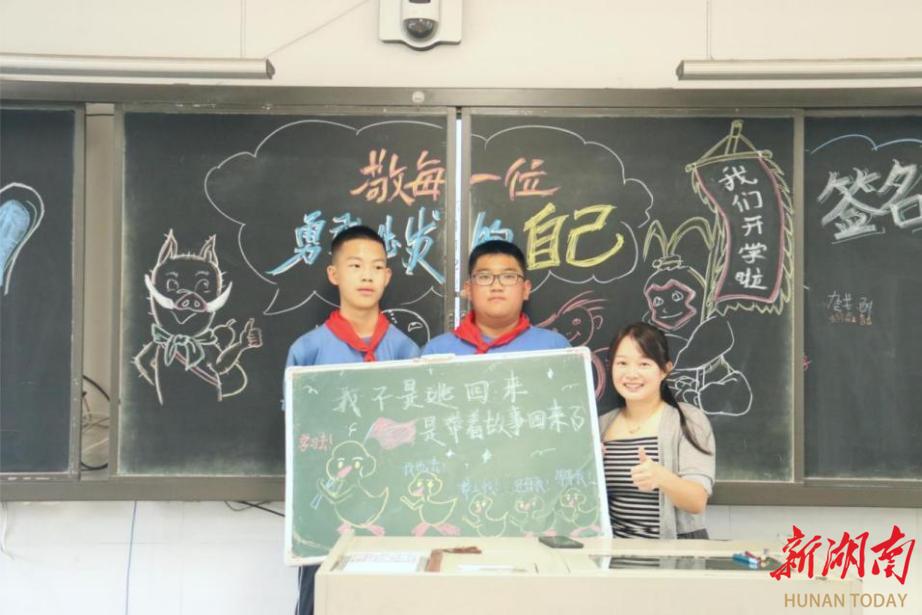 敬每一位
勇敢出发的自己
我们开学啦
签名
我不是跳回来
是带着故事回来了
学习去!
我也去!
新湖南
HUNAN TODAY